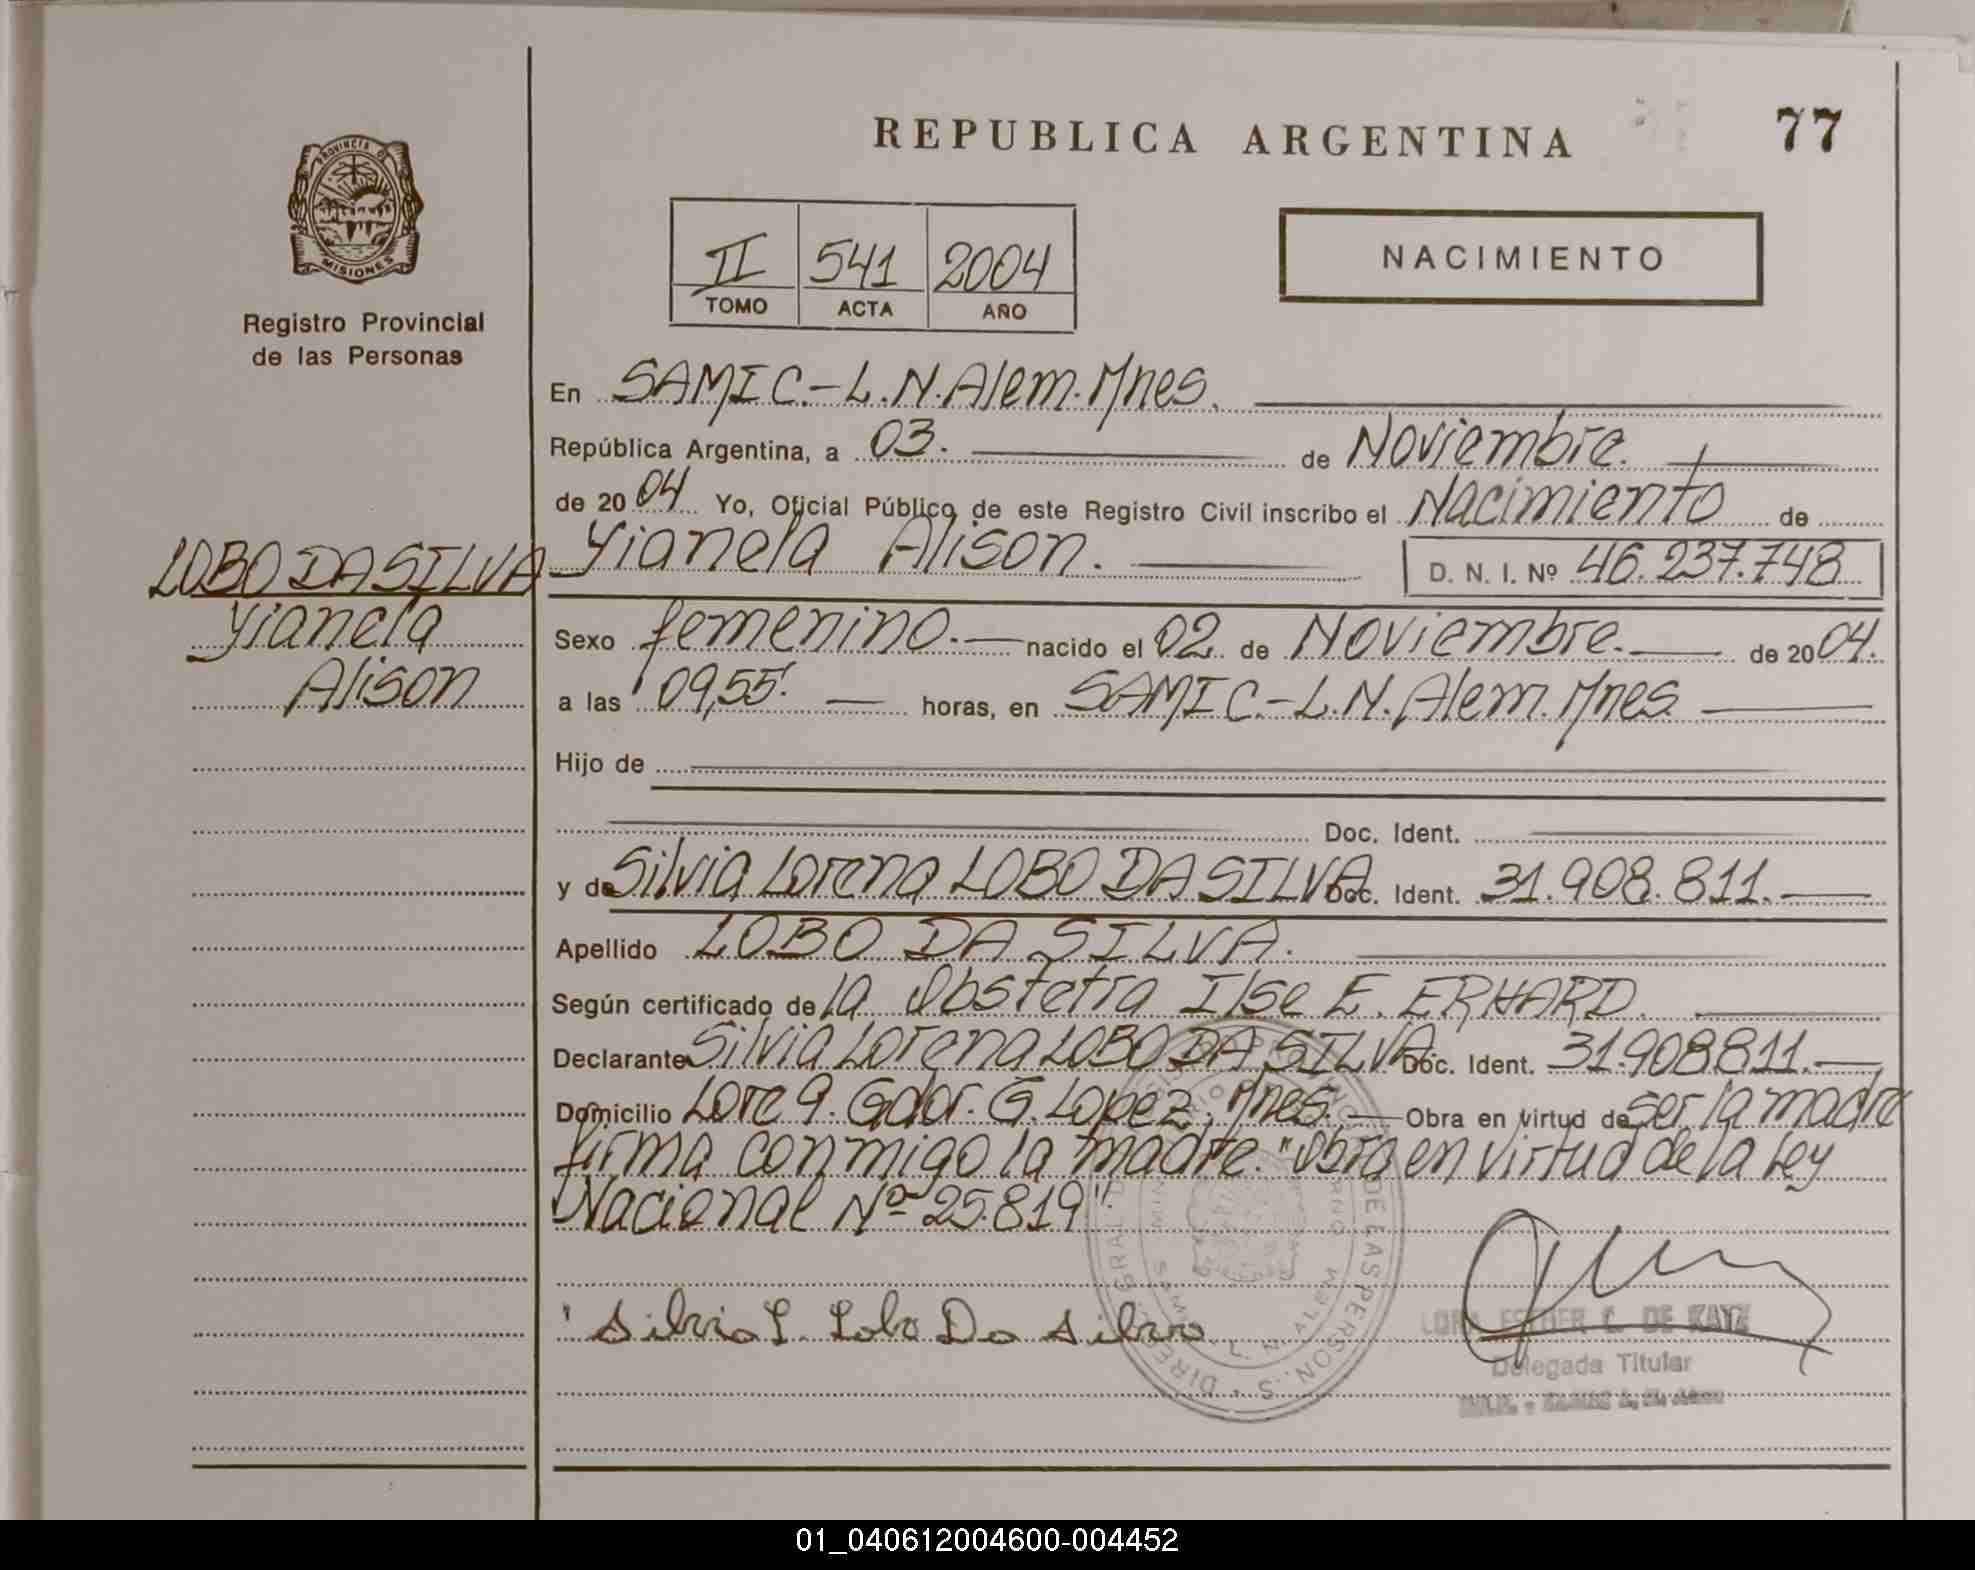 REPUBLICA ARGENTINA
77
PROVINCIA DE
MISIONES
Registro Provincial
de las Personas
II 541 2004
TOMO ACTA AÑO
NACIMIENTO
En SAMIC.-L.N.Alem.Mnes.
República Argentina, a 03. de Noviembre.
de 2004 Yo, Oficial Público de este Registro Civil inscribo el Nacimiento de
LOBO DA SILVA
Yianela
Alison
Yianela Alison.
D. N. I. Nº 46.237.748
Sexo femenino. nacido el 02 de Noviembre. de 2004.
a las 09,55. horas, en SAMIC.-L.N.Alem.Mnes.
Hijo de
Doc. Ident.
y de Silvia Lorena LOBO DA SILVA Doc. Ident. 31.908.811.
Apellido LOBO DA SILVA.
Según certificado de la Obstetra Ilse E. ERHARD.
Declarante Silvia Lorena LOBO DA SILVA. Doc. Ident. 31.908.811.
Domicilio Lore 9. Gdor. G. Lopez, Mnes. Obra en virtud de ser la madre
firma conmigo la madre. "Obra en virtud de la Ley
Nacional Nº 25.819".
Silvia L. Lobo Da Silva
ESTHER C. DE
Delegada Titular
01_040612004600-004452